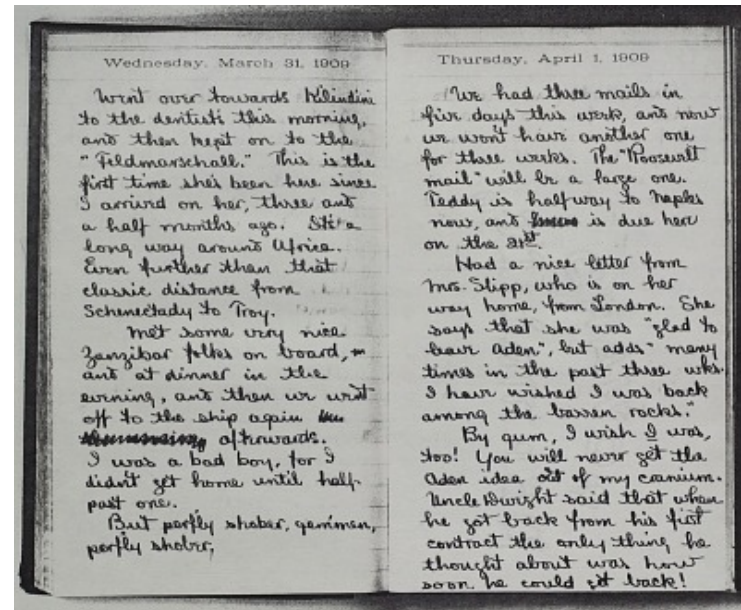 Wednesday, March 31, 1909
Went over towards Kilindini
to the dentists this morning,
and then kept on to the
"Feldmarschall." This is the
first time she's been here since
I arrived on her, three and
a half months ago. It's a
long way around Africa.
Even further than that
classic distance from
Schenectady to Troy.
Met some very nice
Zanzibar folks on board,
and at dinner in the
evening, and then we went
off to the ship again
aftowards.
I was a bad boy, for I
didn't get home until half-
past one.
But perfly shober, gemmen,
perfly shober.
Thursday, April 1, 1909
We had three mails in
five days this week, and now
we won't have another one
for three weeks. The "Roosevelt
mail" will be a large one.
Teddy is halfway to Naples
now, and is due here
on the 21st.
Had a nice letter from
Mrs. Slipp, who is on her
way home, from London. She
says that she was "glad to
leave Aden", but adds "many
times in the past three wks.
I have wished I was back
among the barren rocks."
By gum, I wish I was,
too! You will never get the
Aden idea out of my cranium.
Uncle Dwight said that when
he got back from his first
contract the only thing he
thought about was how
soon he could git back!